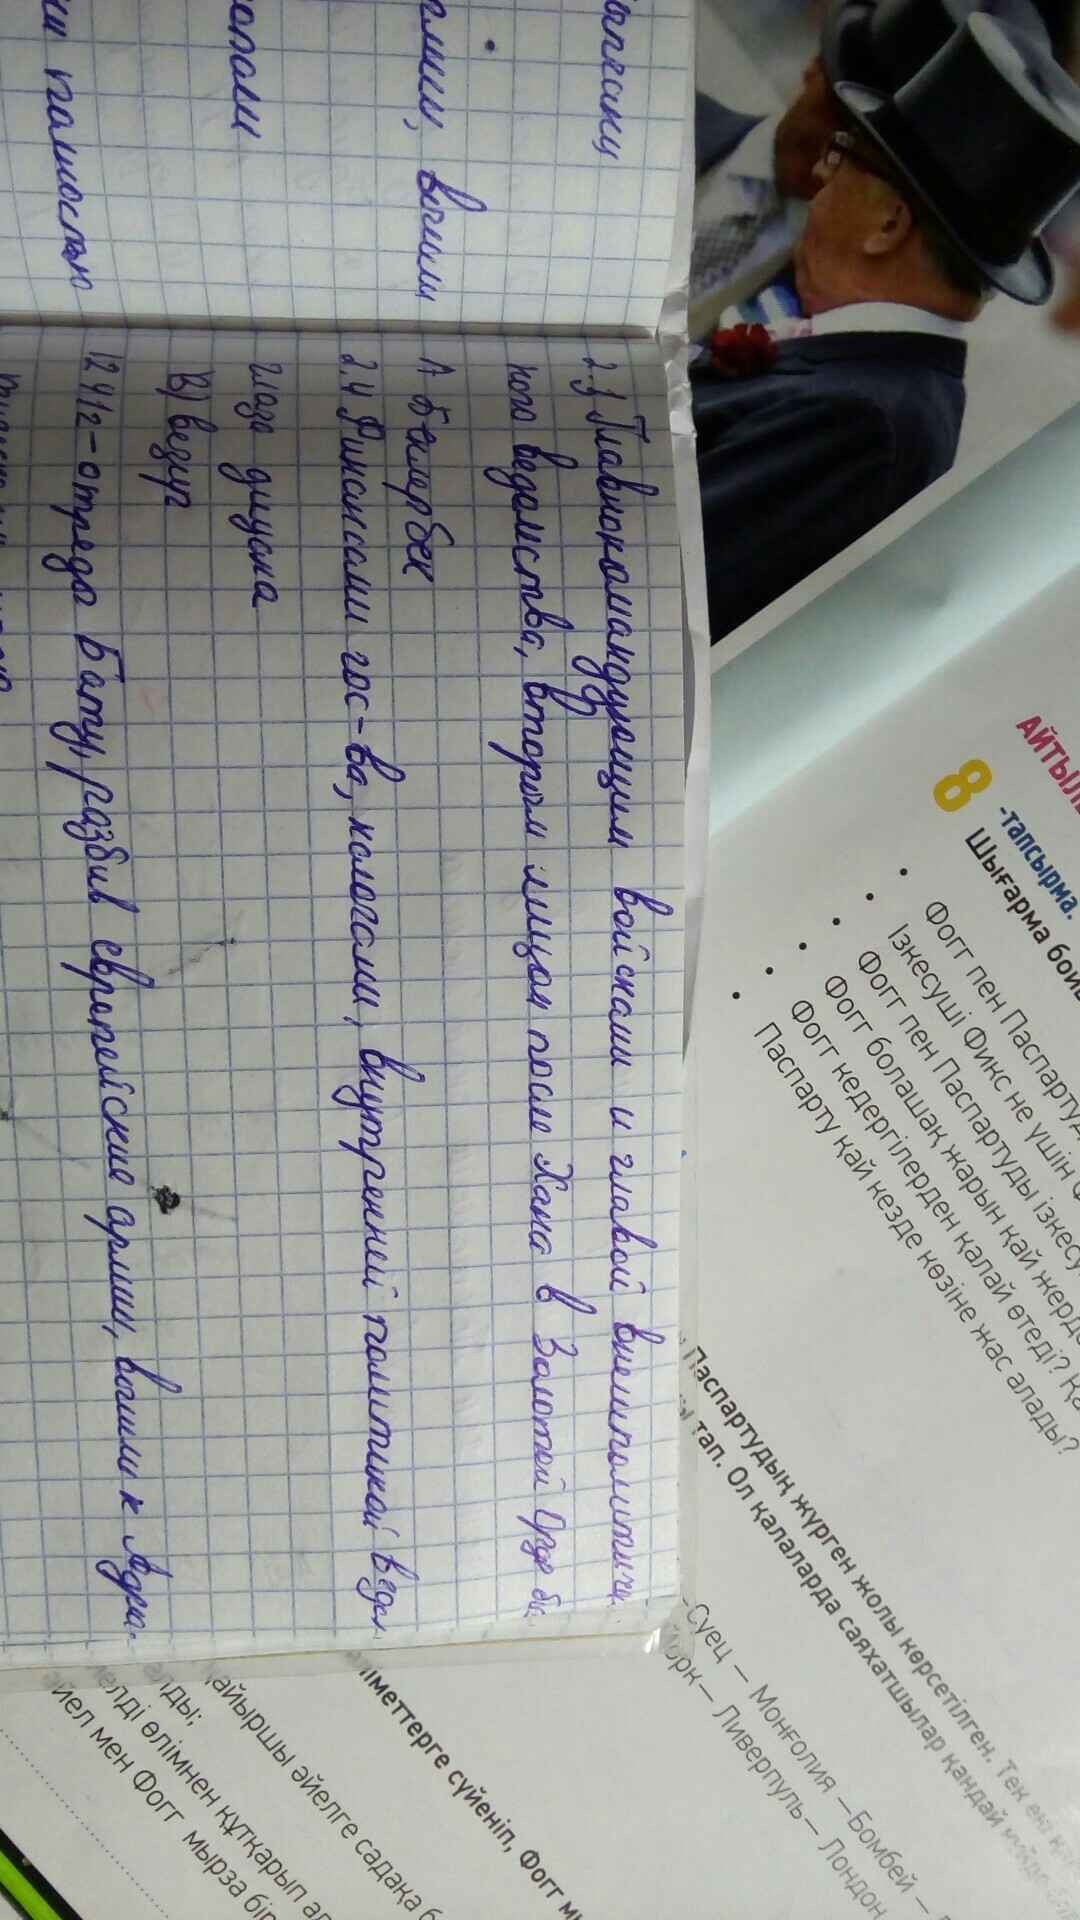 алпаки
олпами
полностью
2.3 Главнокомандующим войсками и главой внешнполитиче
ного ведомства, вторым лицом после Хана в Золотой Орде бы
А беклербек
2.4 Финансами гос-ва, налогами, внутренней политикой ведал
глава дивана
В) везир
1241г-отряды Батыя, разбив европейские армии, вошли к Адриа.
АЙТЫЛ
8
-тапсырма.
Шығарма бойы
Фогг пен Паспарту
Ізкесуші Фикс не үшін Ф
Фогг пен Паспартуды ізкесу
Фогг болашақ жарын қай жерде
Фогг кедергілерден қалай өтеді? Қа
Паспарту қай кезде көзіне жас алады?
Паспартудың жүрген жолы көрсетілген. Тек екі қа
тап. Ол қалаларда саяхатшылар қандай
Суец — Монғолия —Бомбей —
— Ливерпуль— Лондон
ліметтерге сүйеніп, Фогг
қайыршы әйелге садақа б
лды;
елді өлімнен құтқарып ал
әйел мен Фогг мырза бір